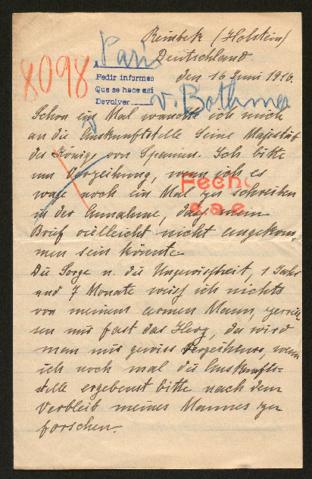 Reinbek / (Holstein)
Deutschland
den 16 Juni 1916.
8098
Paris
Pedir informes
Que se hace así
Devolver
v. Bothmer
Schon ein Mal wandte ich mich
an die Auskunftstelle Seine Majestät
des Königs von Spanien. Ich bitte
um Verzeihung, wenn ich es
wage noch ein Mal zu schreiben
in der Annahme, dass mein
Brief vielleicht nicht angekom-
men sein könnte.
Fecha
Die Sorge u. die Ungewissheit, 1 Jahr
und 7 Monate weiss ich nichts
von meinem armen Mann, zerreis-
sen mir fast das Herz, da wird
man mir gewiss Verzeihung, wenn
ich noch mal die Auskunfts-
stelle ergebenst bitte nach dem
Verbleib meines Mannes zu
forschen.